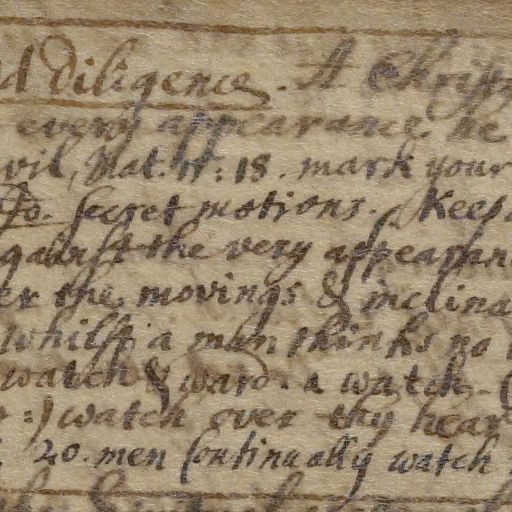 d diligence. A Christ
every appearance. he
vil, Mat. 18. mark your
secret motions. Keep
against the very appearan
er the movings & inclina
whilst a man thinks no
watch & ward. a watch
:) watch over thy hear
20. men continually watch